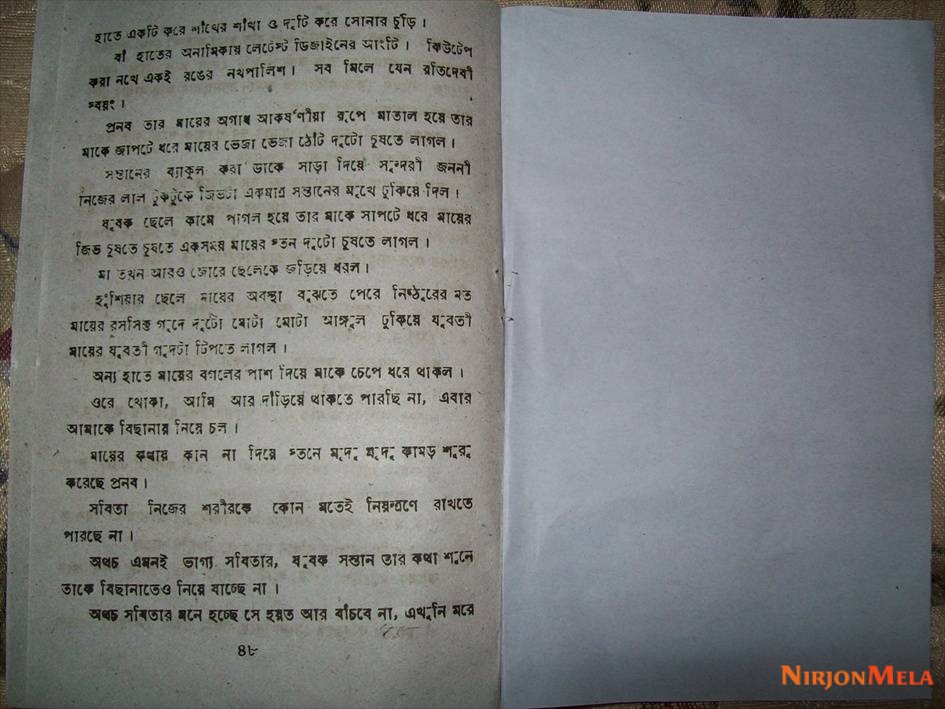 হাতে একটি করে শাঁখের শাঁখা ও দুটি করে সোনার চুড়ি।
বাঁ হাতের অনামিকায় লেটেস্ট ডিজাইনের আংটি। কিউটেপ
করা নখে একই রঙের নখপালিশ। সব মিলে যেন রতিদেবী
স্বয়ং।
প্রনব তার মায়ের অগাধ আকর্ষণীয়া রূপে মাতাল হয়ে তার
মাকে জাপটে ধরে মায়ের ভেজা ভেজা ঠোঁট দুটো চুষতে লাগল।
সন্তানের ব্যাকুল করা ডাকে সাড়া দিয়ে সুন্দরী জননী
নিজের লাল টুকটুকে জিভটা একমাত্র সন্তানের মুখে ঢুকিয়ে দিল।
যুবক ছেলে কামে পাগল হয়ে তার মাকে সাপটে ধরে মায়ের
জিভ চুষতে চুষতে একসময় মায়ের স্তন দুটো চুষতে লাগল।
মা তখন আরও জোরে ছেলেকে জড়িয়ে ধরল।
হুঁশিয়ার ছেলে মায়ের অবস্থা বুঝতে পেরে নিষ্ঠুরের মত
মায়ের রসসিক্ত গুদে দুটো মোটা মোটা আঙ্গুল ঢুকিয়ে যুবতী
মায়ের যুবতী গুদটা টিপতে লাগল।
অন্য হাতে মায়ের বগলের পাশ দিয়ে মাকে চেপে ধরে থাকল।
ওরে খোকা, আমি আর দাঁড়িয়ে থাকতে পারছি না, এবার
আমাকে বিছানায় নিয়ে চল।
মায়ের কথায় কান না দিয়ে স্তনে মৃদু মৃদু কামড় শুরু
করেছে প্রনব।
সবিতা নিজের শরীরকে কোন মতেই নিয়ন্ত্রণে রাখতে
পারছে না।
অথচ এমনই ভাগ্য সবিতার, যুবক সন্তান তার কথা শুনে
তাকে বিছানাতেও নিয়ে যাচ্ছে না।
অথচ সবিতার মনে হচ্ছে সে হয়ত আর বাঁচবে না, এখুনি মরে
৪৮
NIRJONMELA